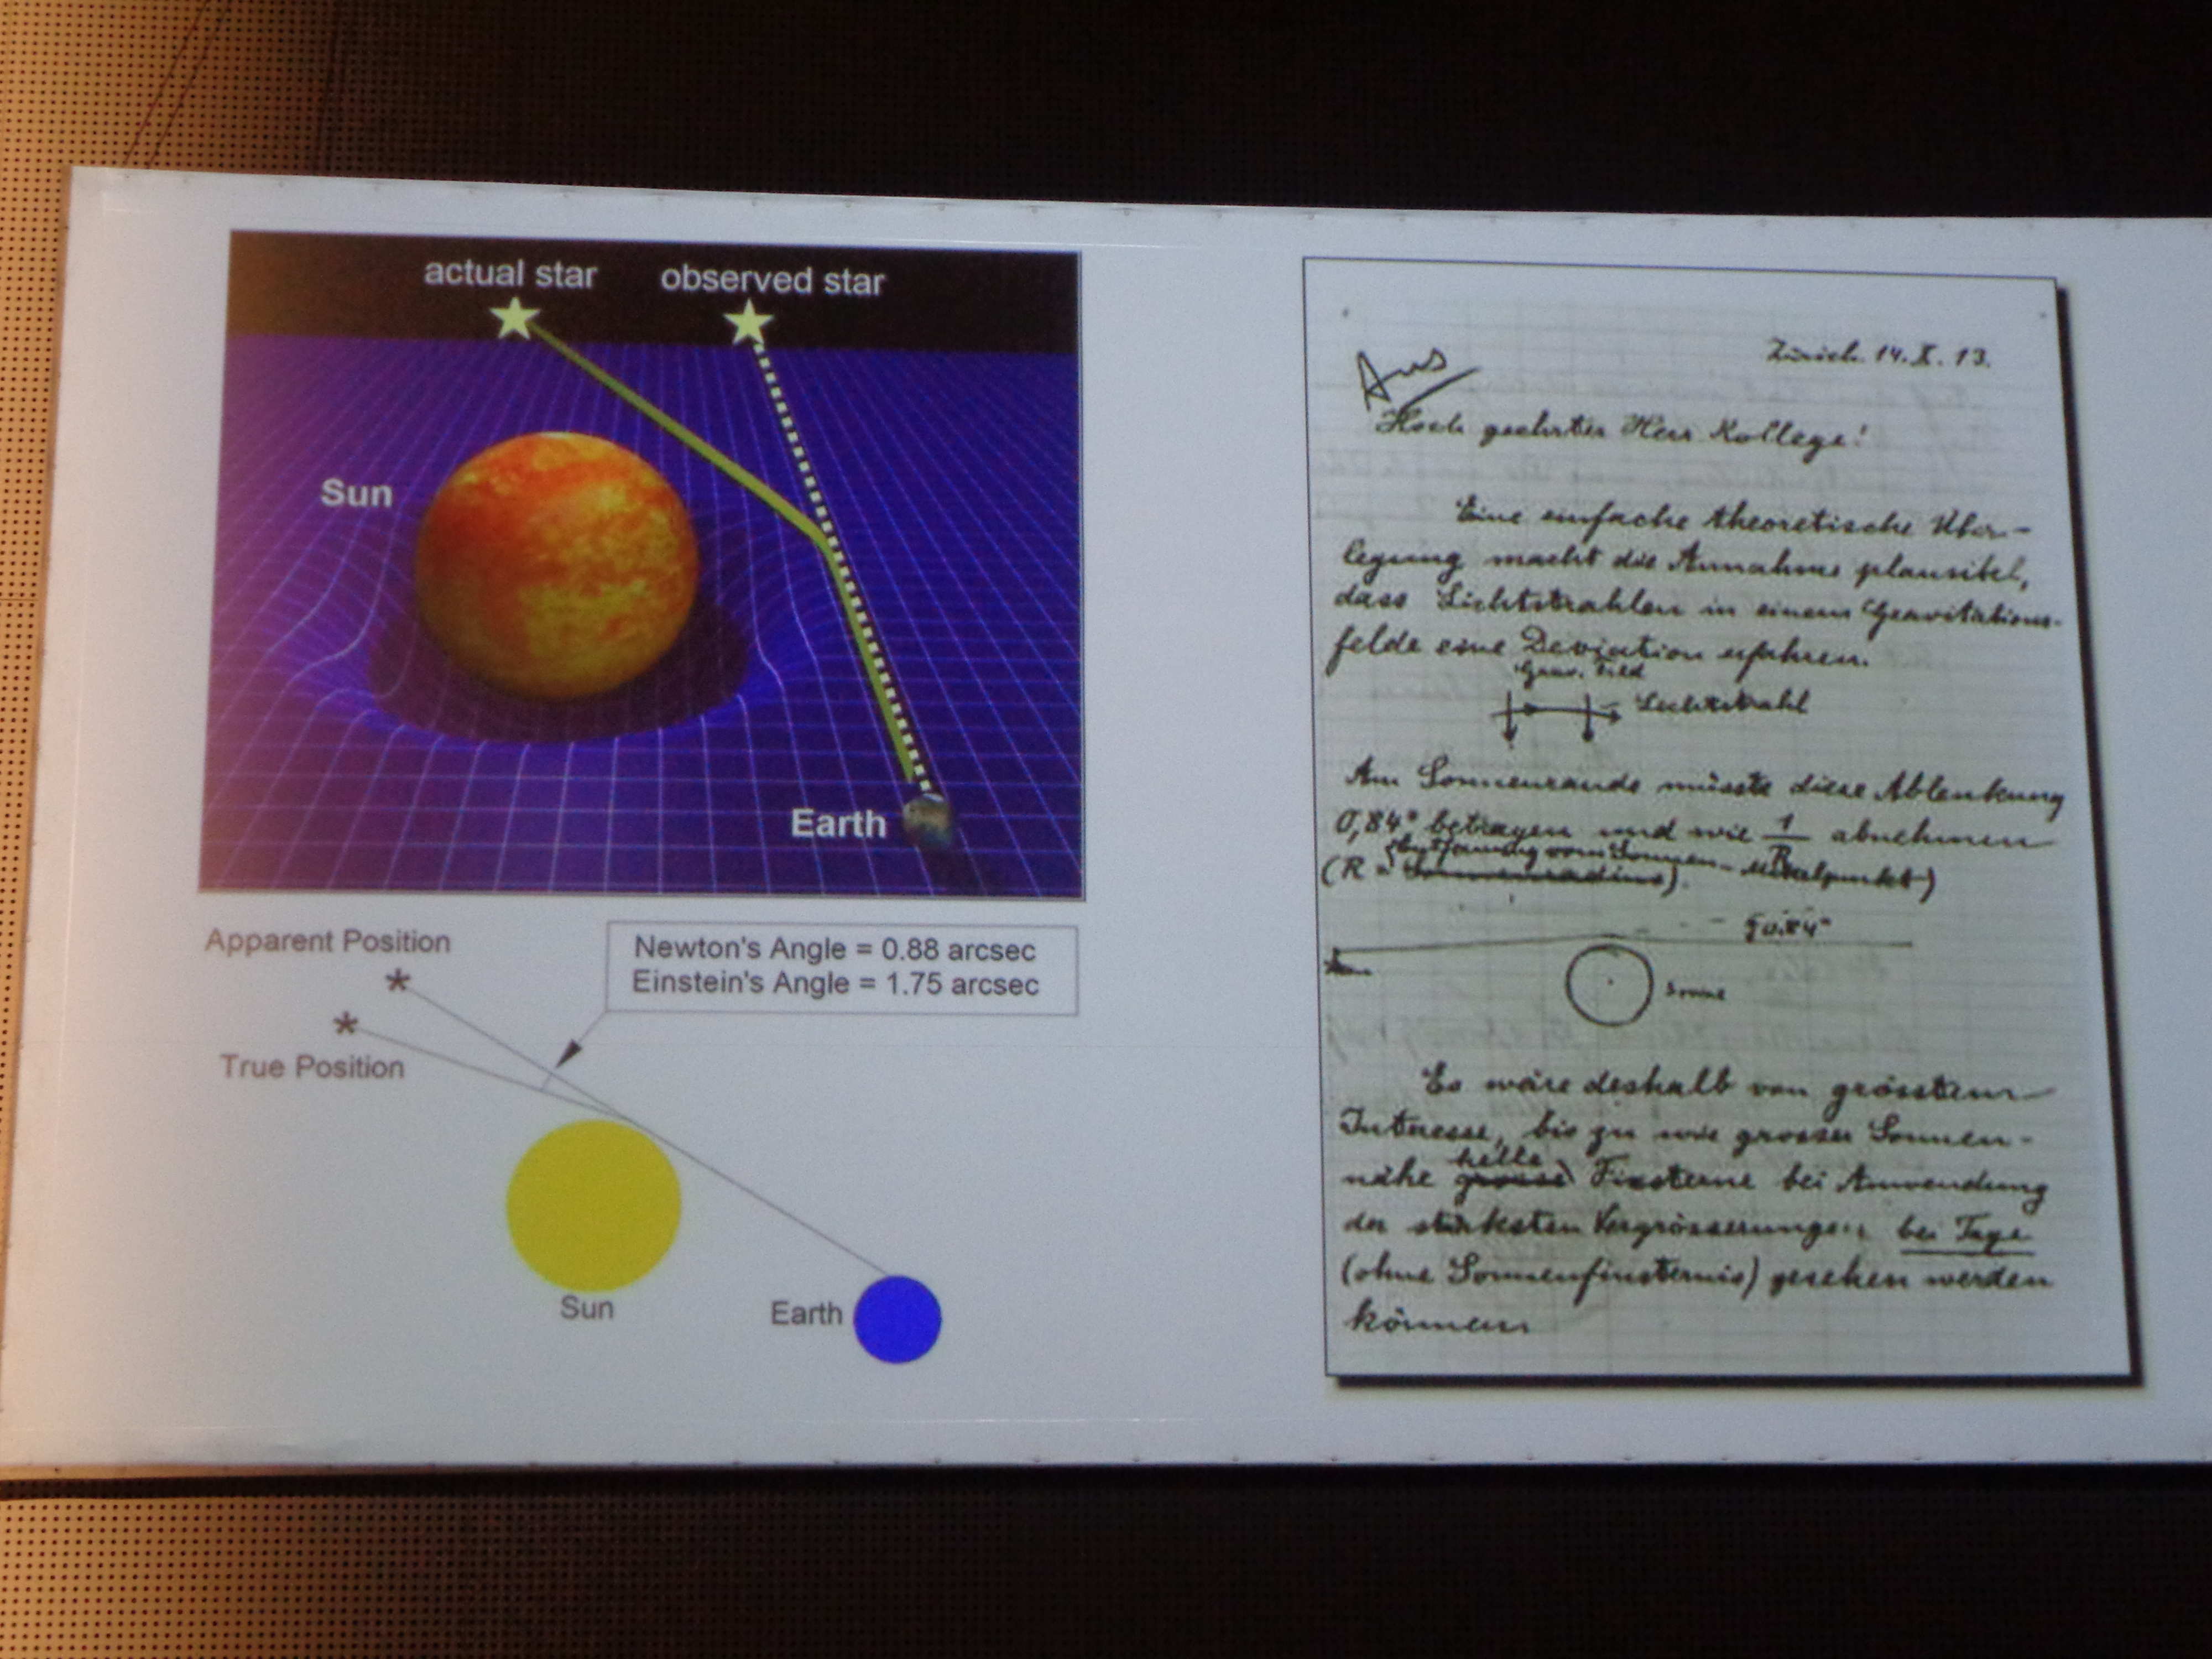 actual star
observed star
Sun
Earth
Apparent Position
True Position
Newton's Angle = 0.88 arcsec
Einstein's Angle = 1.75 arcsec
Sun
Earth
Zürich. 14. X. 13.
Hoch geehrter Herr Kollege!
Eine einfache theoretische Über-
legung macht die Annahme plausibel,
dass Lichtstrahlen in einem Gravitations-
felde eine Deviation erfahren.
Grav. Feld
Lichtstrahl
Am Sonnenrande müsste diese Ablenkung
0,84" betragen und wie 1/R abnehmen
(R = Entfernung vom Sonnen-Mittelpunkt)
0.84"
Sonne
Es wäre deshalb von grösstem
Interesse, bis zu wie grosser Sonnen-
nähe helle Fixsterne bei Anwendung
der stärksten Vergrösserungen bei Tage
(ohne Sonnenfinsternis) gesehen werden
können